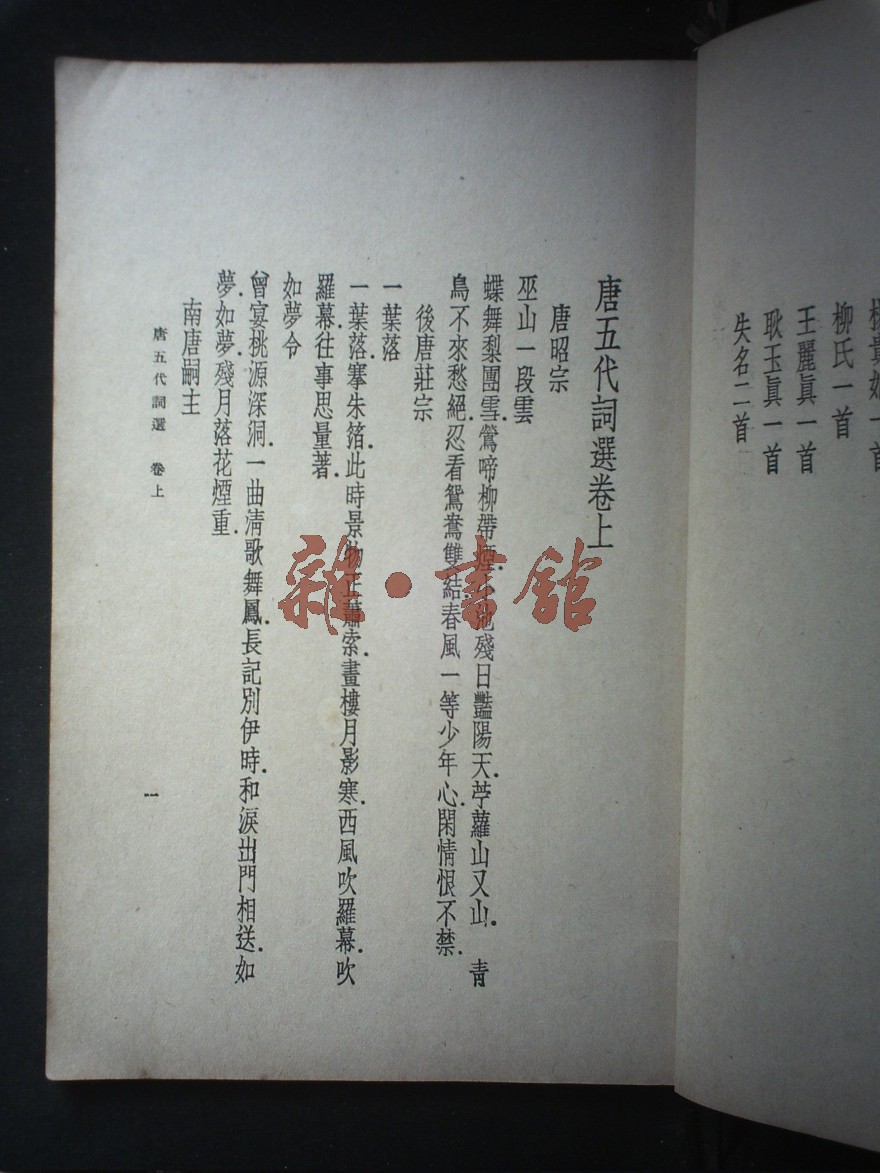 一首
柳氏一首
王麗眞一首
耿玉眞一首
失名二首
唐五代詞選卷上
唐昭宗
巫山一段雲
蝶舞梨團雪.鶯啼柳帶煙.小池殘日豔陽天.苧蘿山又山.　靑
鳥不來愁絕.忍看鴛鴦雙結.春風一等少年心.閑情恨不禁.
後唐莊宗
一葉落
一葉落.搴朱箔.此時景物正蕭索.畫樓月影寒.西風吹羅幕.吹
羅幕.往事思量著.
如夢令
曾宴桃源深洞.一曲淸歌舞鳳.長記別伊時.和淚出門相送.如
夢.如夢.殘月落花煙重.
南唐嗣主
唐五代詞選　卷上
一
雜·書館